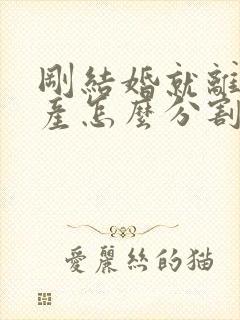 剛結婚就離
產怎麼分割
愛麗絲的貓